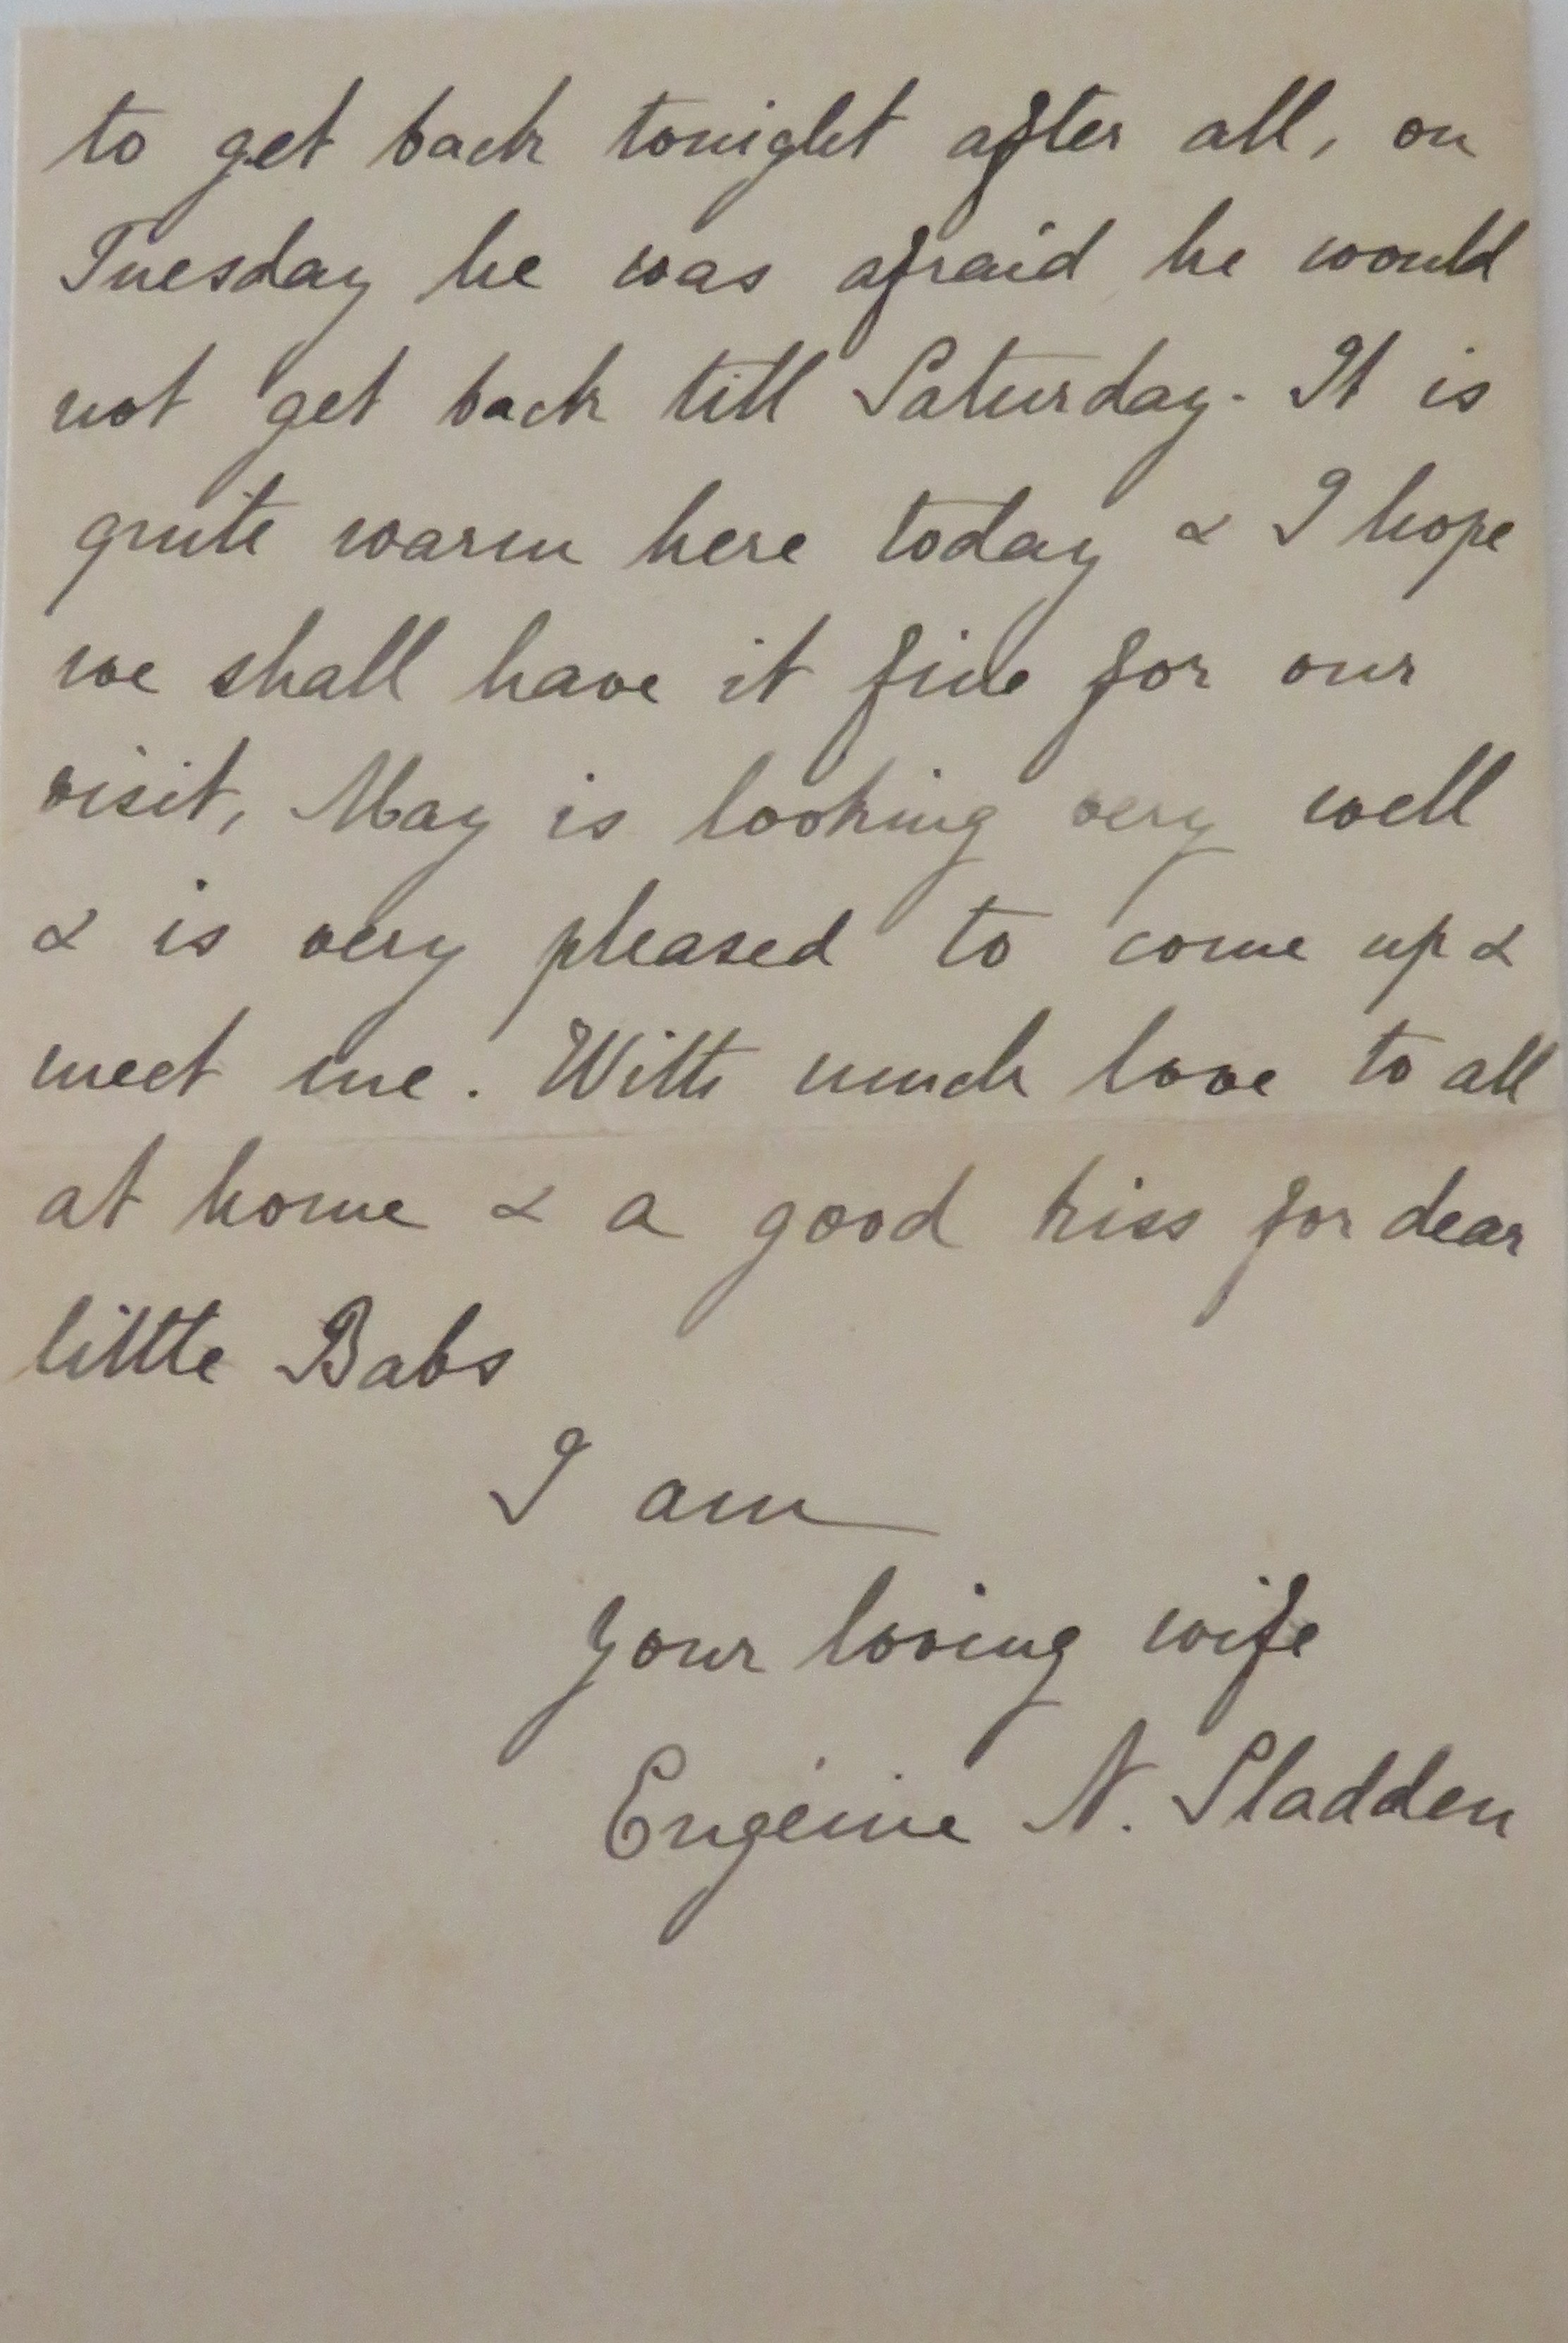 to get back tonight after all, on
Tuesday he was afraid he would
not get back till Saturday. It is
quite warm here today & I hope
we shall have it fine for our
visit, May is looking very well
& is very pleased to come up &
meet me. With much love to all
at home & a good kiss for dear
little Babs
I am
your loving wife
Eugénie N. Sladden